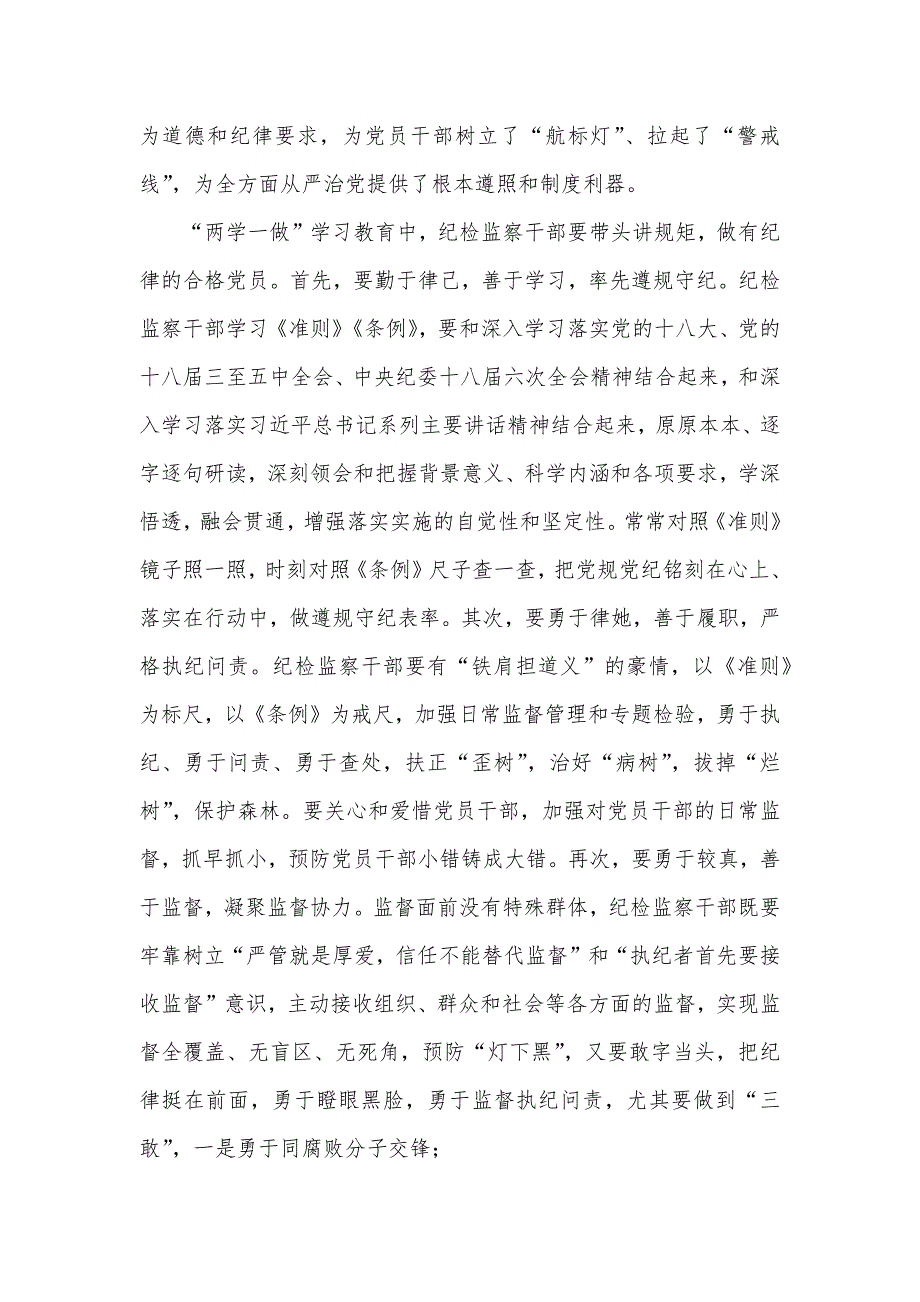 为道德和纪律要求，为党员干部树立了“航标灯”、拉起了“警戒
线”，为全方面从严治党提供了根本遵照和制度利器。
“两学一做”学习教育中，纪检监察干部要带头讲规矩，做有纪
律的合格党员。首先，要勤于律己，善于学习，率先遵规守纪。纪检
监察干部学习《准则》《条例》，要和深入学习落实党的十八大、党的
十八届三至五中全会、中央纪委十八届六次全会精神结合起来，和深
入学习落实习近平总书记系列主要讲话精神结合起来，原原本本、逐
字逐句研读，深刻领会和把握背景意义、科学内涵和各项要求，学深
悟透，融会贯通，增强落实实施的自觉性和坚定性。常常对照《准则》
镜子照一照，时刻对照《条例》尺子查一查，把党规党纪铭刻在心上、
落实在行动中，做遵规守纪表率。其次，要勇于律她，善于履职，严
格执纪问责。纪检监察干部要有“铁肩担道义”的豪情，以《准则》
为标尺，以《条例》为戒尺，加强日常监督管理和专题检验，勇于执
纪、勇于问责、勇于查处，扶正“歪树”，治好“病树”，拔掉“烂
树”，保护森林。要关心和爱惜党员干部，加强对党员干部的日常监
督，抓早抓小，预防党员干部小错铸成大错。再次，要勇于较真，善
于监督，凝聚监督协力。监督面前没有特殊群体，纪检监察干部既要
牢靠树立“严管就是厚爱，信任不能替代监督”和“执纪者首先要接
收监督”意识，主动接收组织、群众和社会等各方面的监督，实现监
督全覆盖、无盲区、无死角，预防“灯下黑”，又要敢字当头，把纪
律挺在前面，勇于瞪眼黑脸，勇于监督执纪问责，尤其要做到“三
敢”，一是勇于同腐败分子交锋；